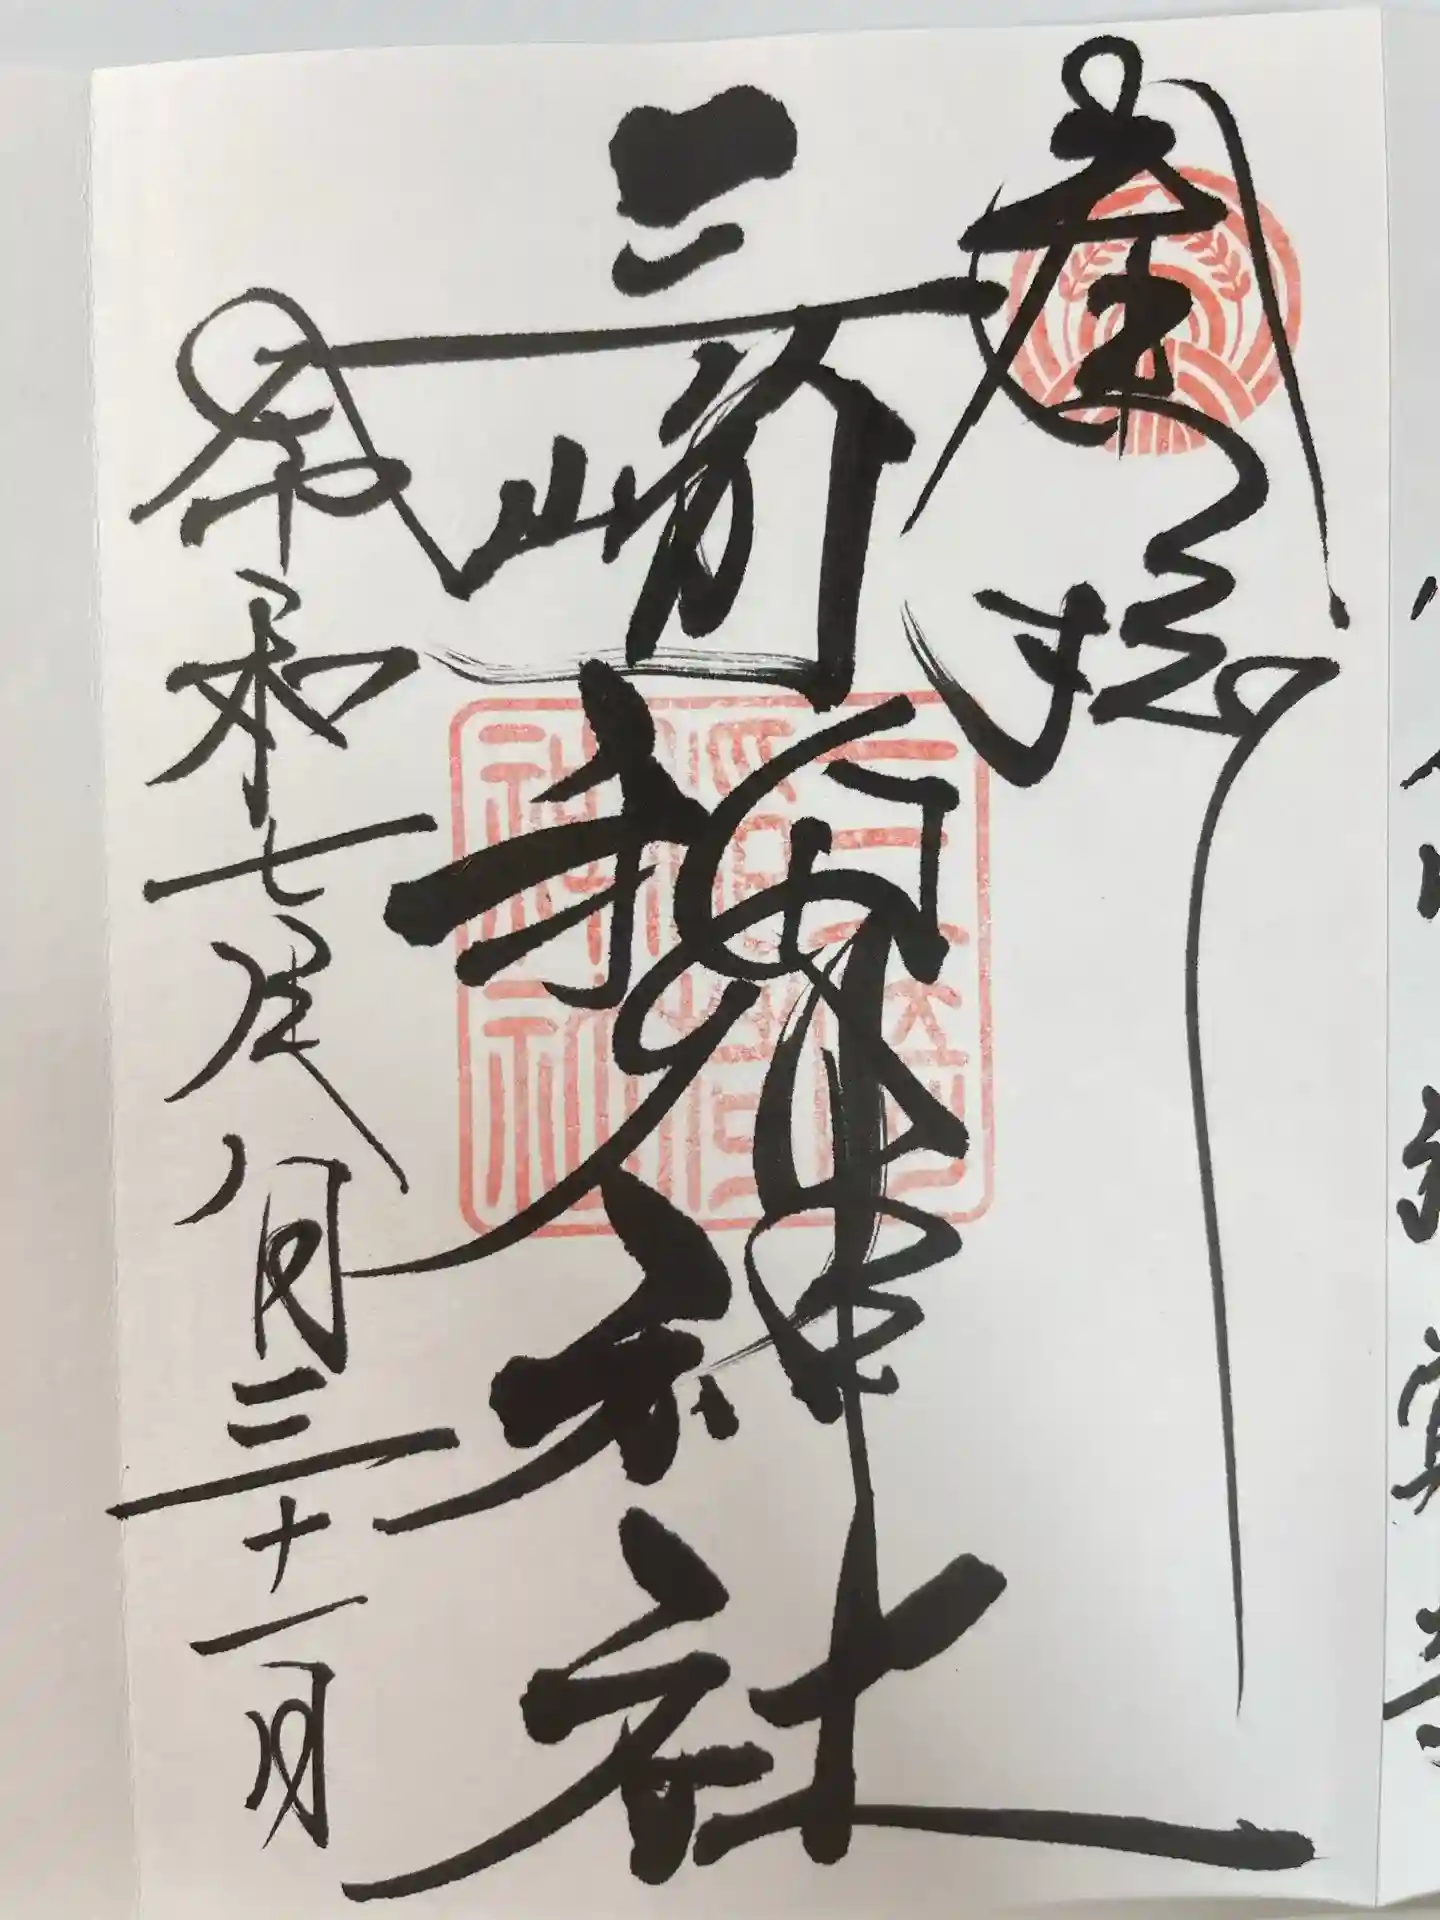 奉拝
三崎稲荷神社
令和七年八月三十一日